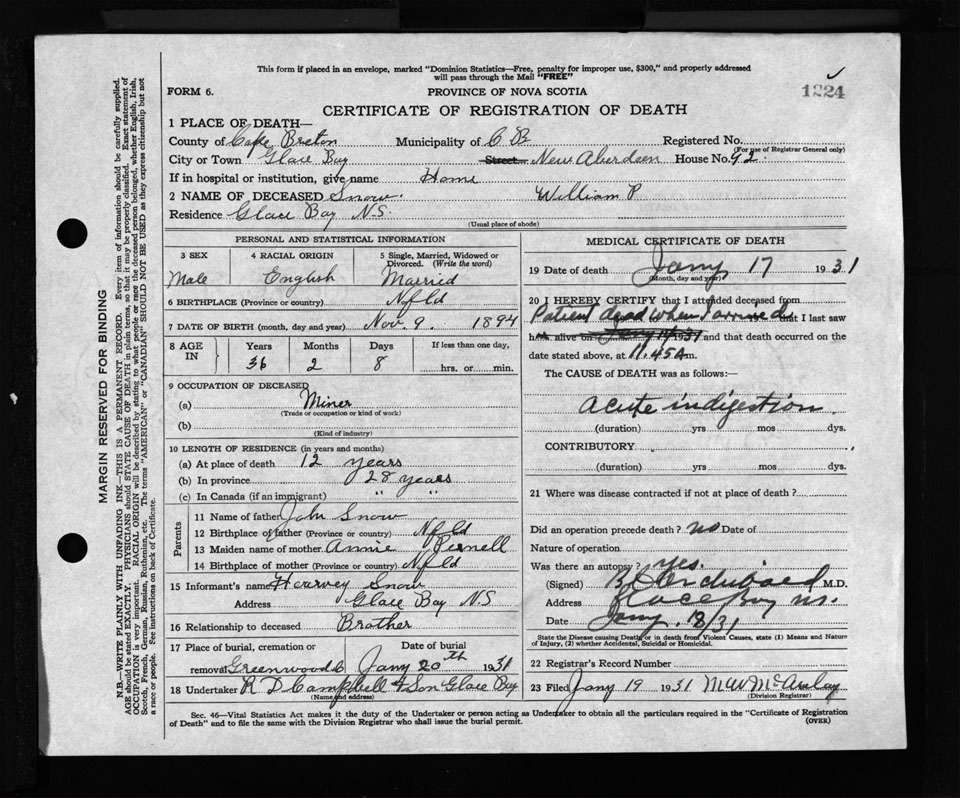 This form if placed in an envelope, marked "Dominion Statistics—Free, penalty for improper use, $300," and properly addressed
will pass through the Mail "FREE"
FORM 6.
PROVINCE OF NOVA SCOTIA
1224
CERTIFICATE OF REGISTRATION OF DEATH
1 PLACE OF DEATH—
County of Cape Breton Municipality of C B Registered No.
(For use of Registrar General only)
City or Town Glace Bay Street New Aberdeen House No. 92
If in hospital or institution, give name Home
2 NAME OF DECEASED Snow. William P
Residence Glace Bay N.S.
(Usual place of abode)
PERSONAL AND STATISTICAL INFORMATION
3 SEX 4 RACIAL ORIGIN 5 Single, Married, Widowed or Divorced. (Write the word)
Male English Married
6 BIRTHPLACE (Province or country) Nfld
7 DATE OF BIRTH (month, day and year) Nov. 9. 1894
8 AGE IN Years Months Days If less than one day,
36 2 8 hrs. or min.
9 OCCUPATION OF DECEASED
(a) Miner
(Trade or occupation or kind of work)
(b)
(Kind of industry)
10 LENGTH OF RESIDENCE (in years and months)
(a) At place of death 12 years
(b) In province 28 years
(c) In Canada (if an immigrant) " "
Parents
11 Name of father John Snow
12 Birthplace of father (Province or country) Nfld
13 Maiden name of mother Annie Pernell
14 Birthplace of mother (Province or country) Nfld
15 Informant's name Hearvey Snow
Address Glace Bay N.S
16 Relationship to deceased Brother
17 Place of burial, cremation or Date of burial
removal Greenwood Jany 20th 1931
18 Undertaker R D Campbell & Son Glace Bay
(Name and address)
MEDICAL CERTIFICATE OF DEATH
19 Date of death Jany 17 1931
(Month, day and year)
20 I HEREBY CERTIFY that I attended deceased from
Patient dead when I arrived that I last saw
h alive on Jany 17 1931 and that death occurred on the
date stated above, at 11.45 A m.
The CAUSE of DEATH was as follows:—
Acute indigestion
(duration) yrs mos dys.
CONTRIBUTORY
(duration) yrs mos dys.
21 Where was disease contracted if not at place of death?
Did an operation precede death? no Date of
Nature of operation
Was there an autopsy? yes.
(Signed) Archibald M.D.
Address Glace Bay N.S.
Date Jany. 18/31
State the Disease causing Death, or in death from Violent Causes, state (1) Means and Nature
of Injury, (2) whether Accidental, Suicidal or Homicidal.
22 Registrar's Record Number
23 Filed Jany 19 1931 M W McAulay
(Division Registrar)
Sec. 46—Vital Statistics Act makes it the duty of the Undertaker or person acting as Undertaker to obtain all the particulars required in the "Certificate of Registration
of Death" and to file the same with the Division Registrar who shall issue the burial permit.
(OVER)
MARGIN RESERVED FOR BINDING
N.B.—WRITE PLAINLY WITH UNFADING INK—THIS IS A PERMANENT RECORD. Every item of information should be carefully supplied.
AGE should be stated EXACTLY. PHYSICIANS should STATE CAUSE OF DEATH in plain terms, so that it may be properly classified. Exact statement of
OCCUPATION is very important. RACIAL ORIGIN will be described by stating to what people or race the deceased person belonged, whether English, Irish,
Scotch, French, German, Russian, Ruthenian, etc. The terms "AMERICAN" or "CANADIAN" SHOULD NOT BE USED as they express citizenship but not
a race or people. See instructions on back of Certificate.